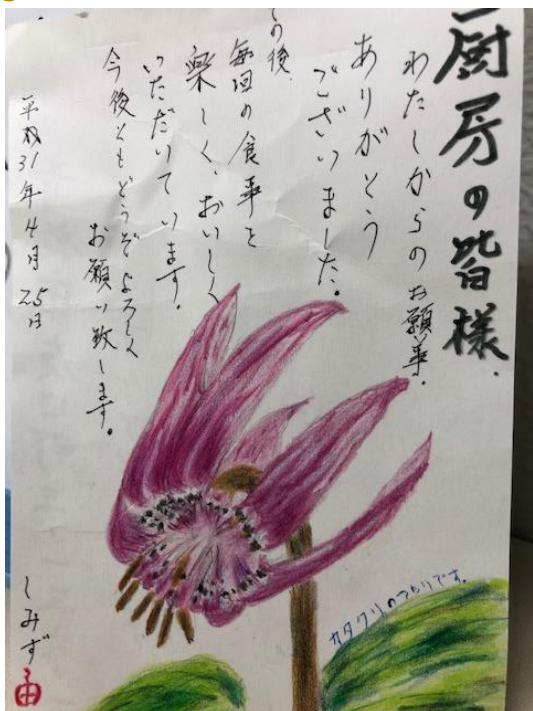 厨房の皆様
わたしからのお願事。
ありがとう
ございました。
その後、
毎回の食事を
楽しく、おいしく
いただいています。
今後ともどうぞよろしく
お願い致します。
平成31年4月25日
しみず
カタクリのつもりです。